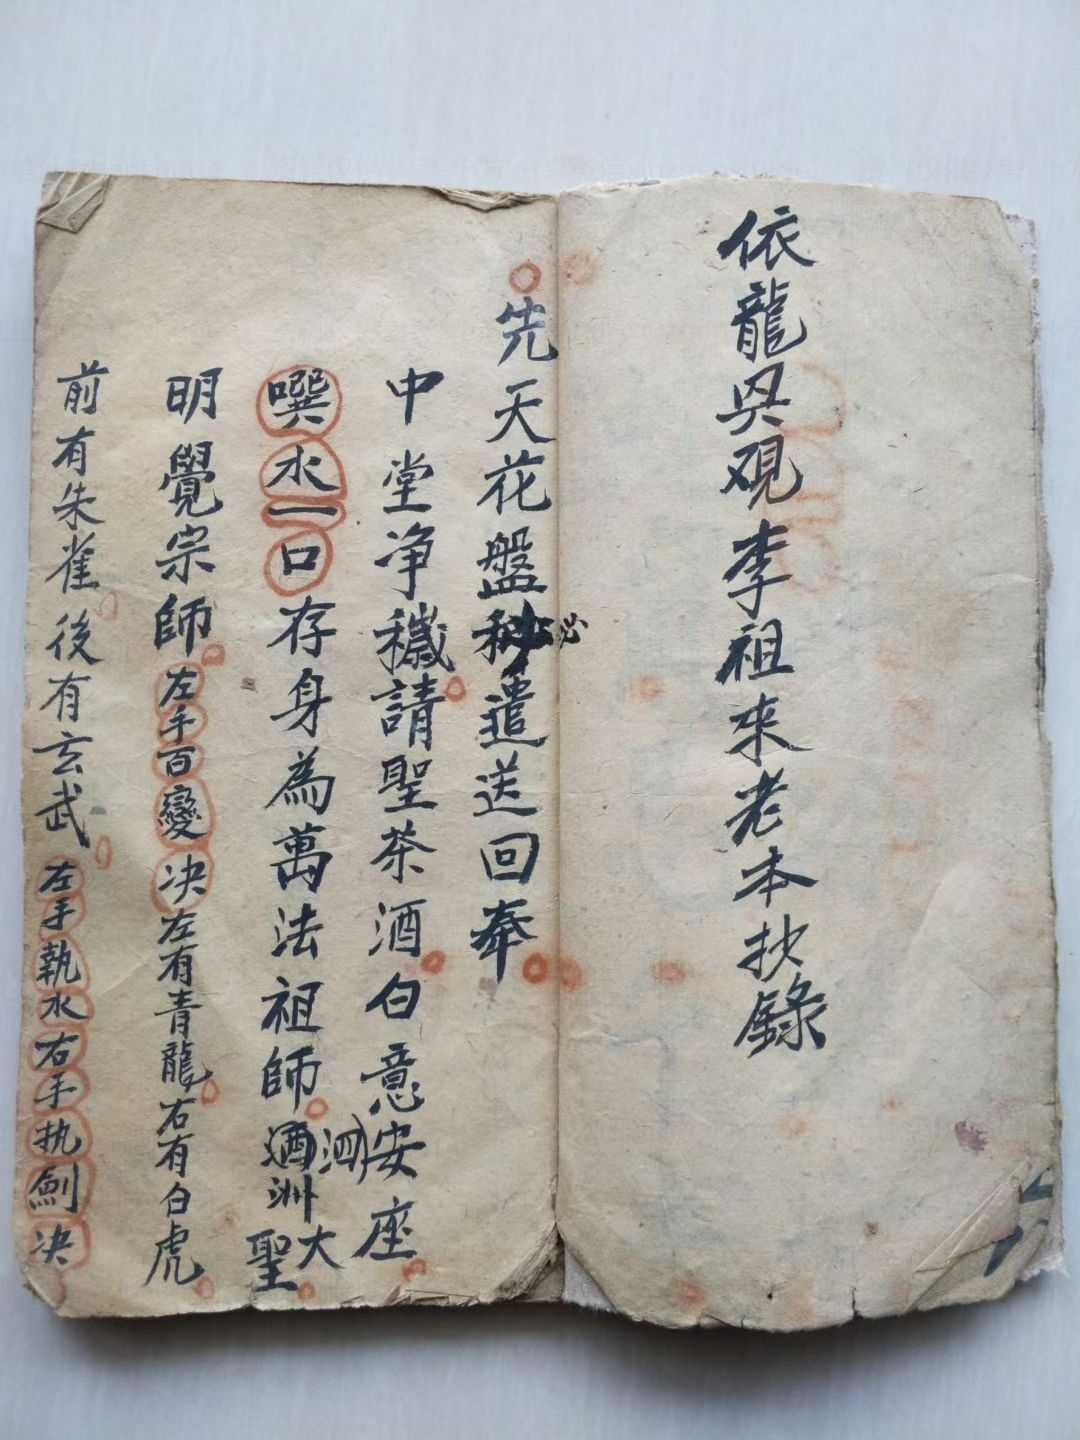 依龍吳硯李祖來老本抄錄
先天花盤秘遣送回奉
中堂净穢請聖茶酒白意安座
噀水一口存身為萬法祖師泗洲大聖
明覺宗師左手百變决左有青龍右有白虎
前有朱雀後有玄武左手執水右手执劍决